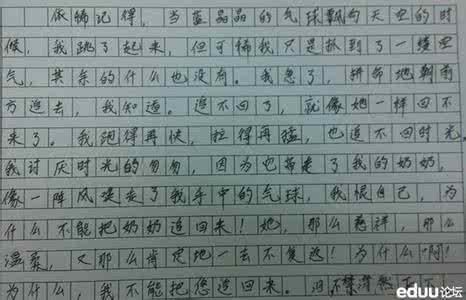 依稀记得，当蓝晶晶的气球飘向天空的时
候，我跳了起来，但可惜我只是抓到了一缕空
气，其余的什么也没有。我急了，拼命地朝前
方追去，我知道。追不回了，就像她一样回不
来了。我跑得再快，拉得再猛，也追不回时光。
我讨厌时光的匆匆，因为它带走了我的奶奶，
像一阵风吹走了我手中的气球，我恨自己，为
什么不能把奶奶追回来！她，那么慈祥，那么
温柔，又那么肯定地一去不复返！为什么啊！
为什么，我不能把您追回来。泪不禁潸然下
eduu论坛